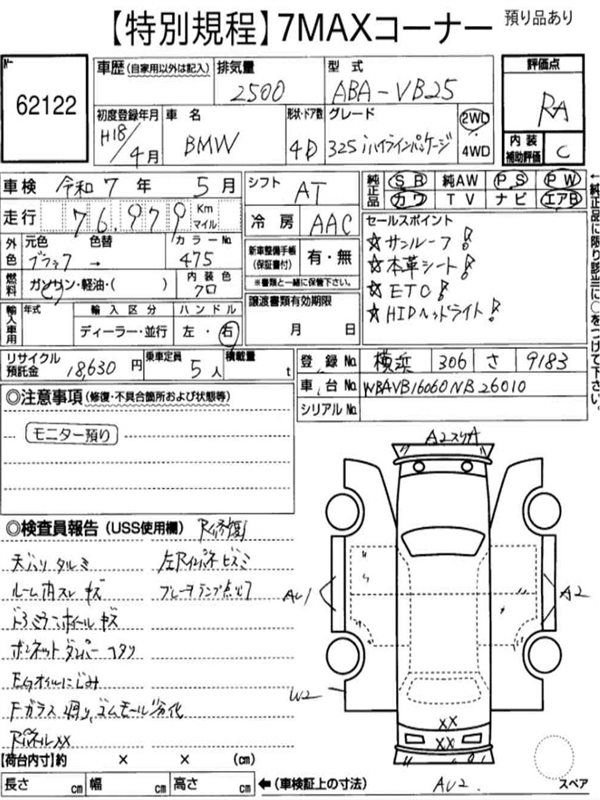 【特別規程】7MAXコーナー 預り品あり
62122
車歴 (自家用以外は記入) 排気量 2500 型式 ABA-VB25 評価点 RA
初度登録年月 H18/4月 車名 BMW 形状・ドア数 4D グレード 325iハイラインパッケージ 2WD 4WD 内装補助評価 C
車検 令和7年 5月 シフト AT 純正品 SB 純AW PS PW
走行 76,979 Km マイル 冷房 AAC カワ TV ナビ エアB
外色 元色 ブラック 色替 → カラーNo. 475 新車整備手帳(保証書付) 有・無 ※書類と一緒に保管下さい。
セールスポイント
☆サンルーフ!
☆本革シート!
☆ETC!
☆HIDヘッドライト!
燃料 ガソリン・軽油・( ) 内装色 クロ
輸入車用 年式 輸入区分 ディーラー・並行 ハンドル 左・右 譲渡書類有効期限 月 日
リサイクル預託金 18,630円 乗車定員 5人 積載量 t
登録No. 横浜 306 さ 9183
車台No. WBAVB16060NB26010
シリアルNo.
←純正品に限り該当に○をつけて下さい。
◎注意事項 (修復・不具合箇所および状態等)
モニター預り
◎検査員報告 (USS使用欄) R修復
天バリ タルミ
ルーム内スレ キズ
ドアミラーホイールキズ
ボンネットダンパー ヘタリ
EGオイルにじみ
Fガラス 周り、ゴムモール劣化
Rパネル XX
左Rインパネ ヒズミ
ブレーキランプ点灯
A2スリA
AU1
A2
W2
XX
XX
AU2
スペア
【荷台内寸】約 × × (cm)
長さ cm 幅 cm 高さ cm ←(車検証上の寸法)